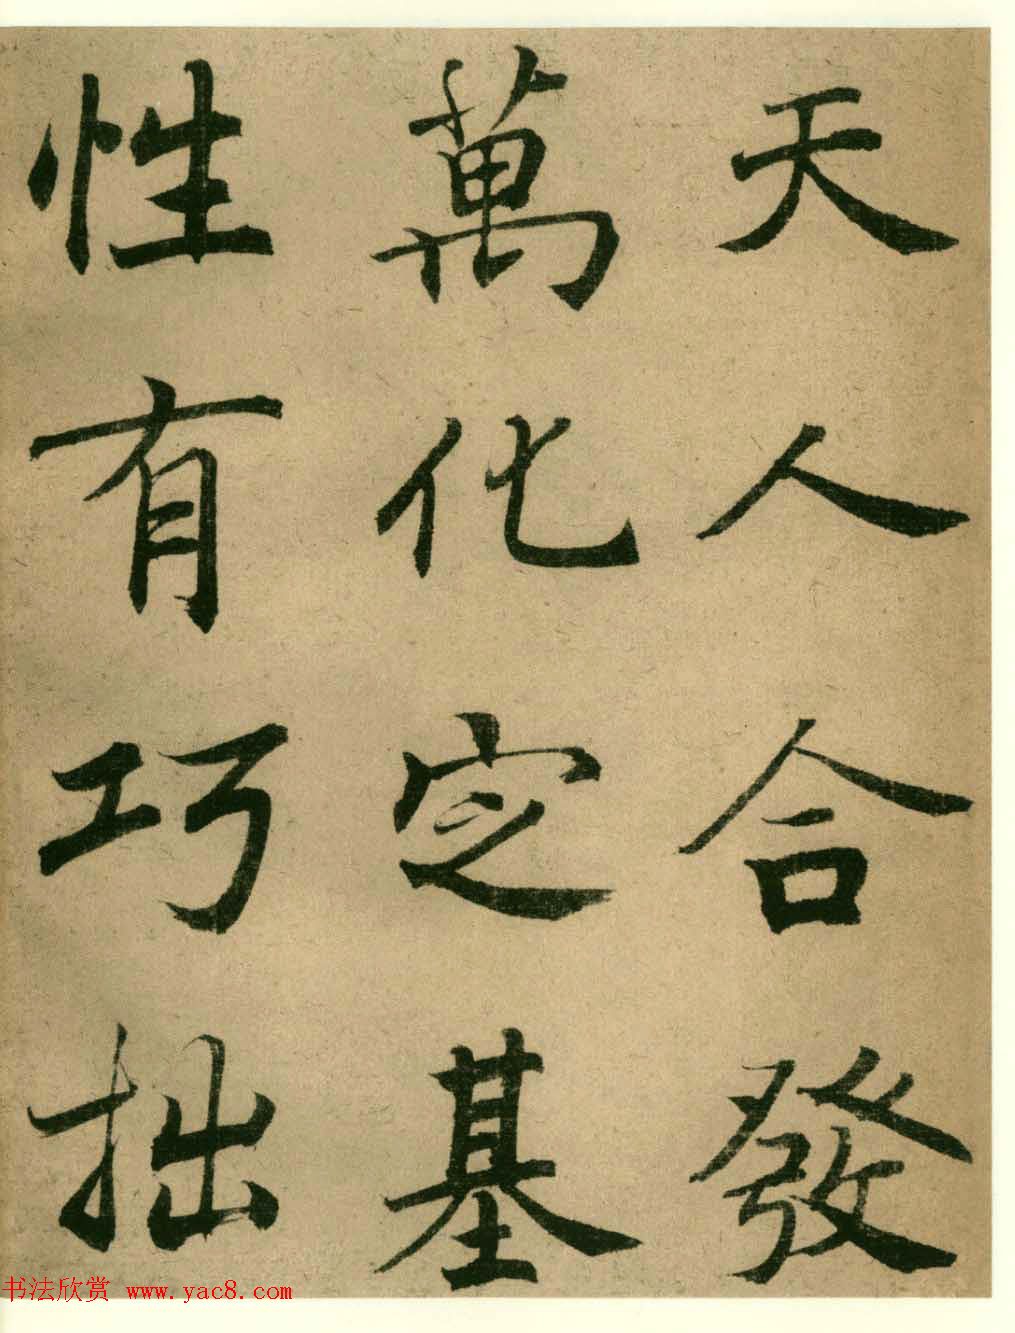 天人合發
萬化定基
性有巧拙
书法欣赏 www.yac8.com